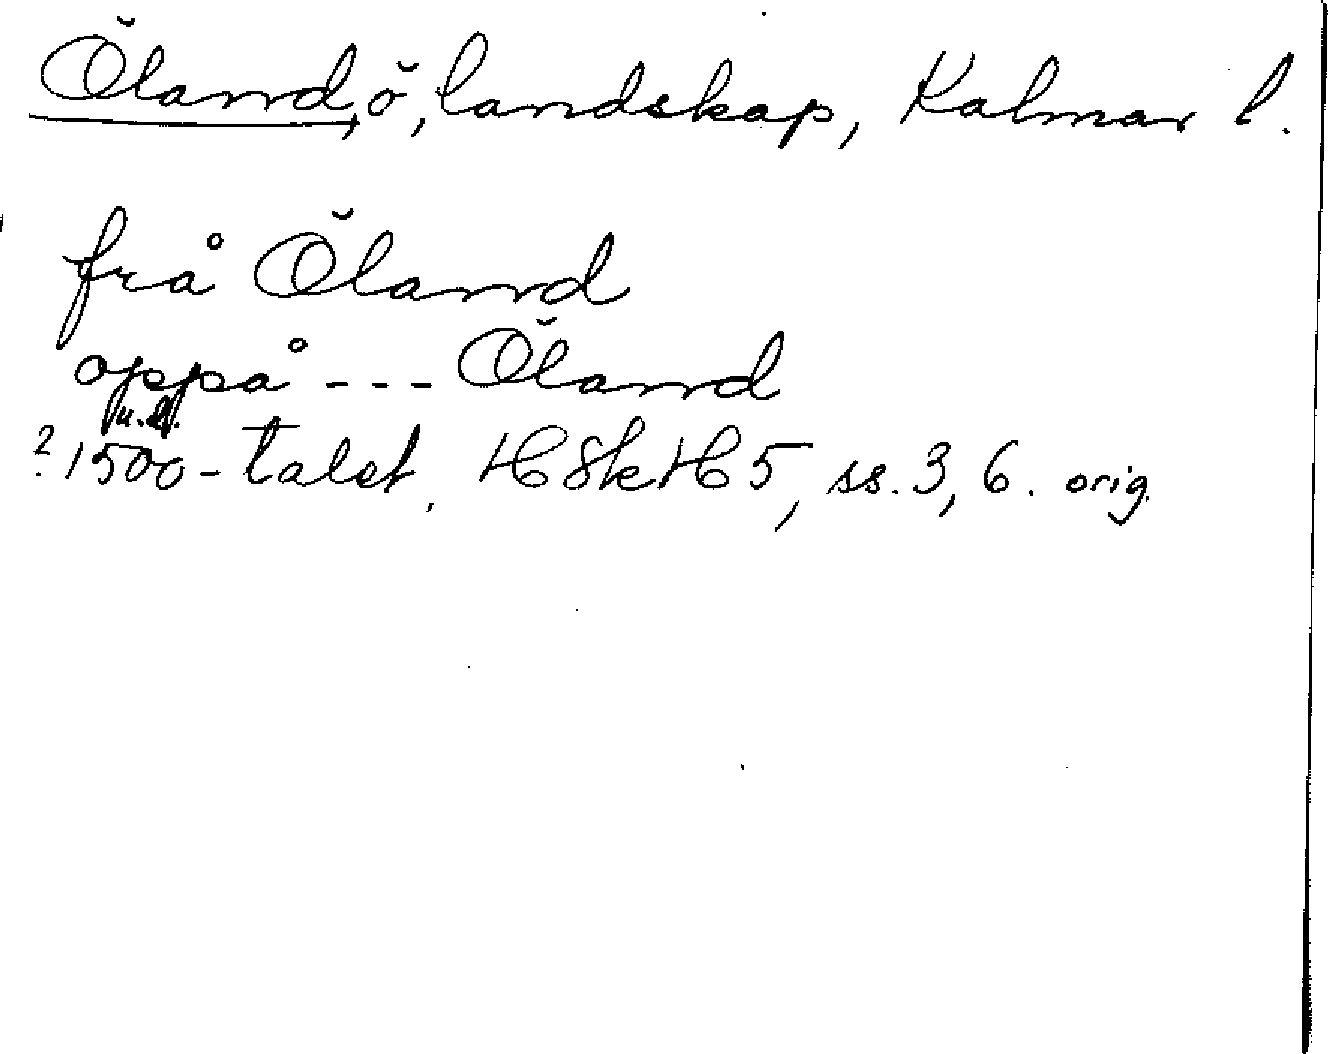 Öland, ö, landskap, Kalmar l.
från Öland
oppå --- Öland
? 1500-talet, HSkH 5, ss. 3, 6. orig.